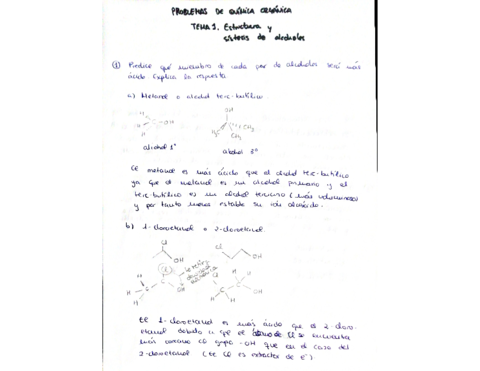 PROBLEMAS DE QUÍMICA ORGÁNICA
TEMA 1. Estructura y
síntesis de alcoholes
① Predice qué miembro de cada par de alcoholes será más
ácido. Explica la respuesta
a) Metanol o alcohol terc-butílico
OH
H
H
H
OH
CH3
CH3
alcohol 1º
alcohol 3º
El metanol es más ácido que el alcohol terc-butílico
ya que el metanol es un alcohol primario y el
terc-butílico es un alcohol terciario (más voluminoso)
y por tanto menos estable su ión alcóxido.
b) 1-cloroetanol o 2-cloroetanol.
Cl
OH
Cl
OH
Cl
H
H
H
C
C
OH
H
H
C
C
OH
Cl
H
El 1-cloroetanol es más ácido que el 2-cloro
etanol debido a que el átomo de Cl se encuentra
más cercano al grupo -OH que en el caso del
2-cloroetanol (el Cl es extractor de e⁻)